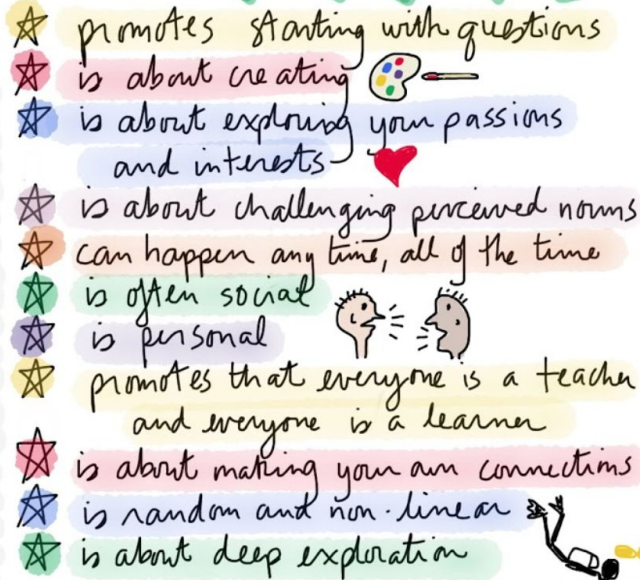 promotes starting with questions
is about creating
is about exploring your passions
and interests
is about challenging perceived norms
can happen any time, all of the time
is often social
is personal
promotes that everyone is a teacher
and everyone is a learner
is about making your own connections
is random and non-linear
is about deep exploration